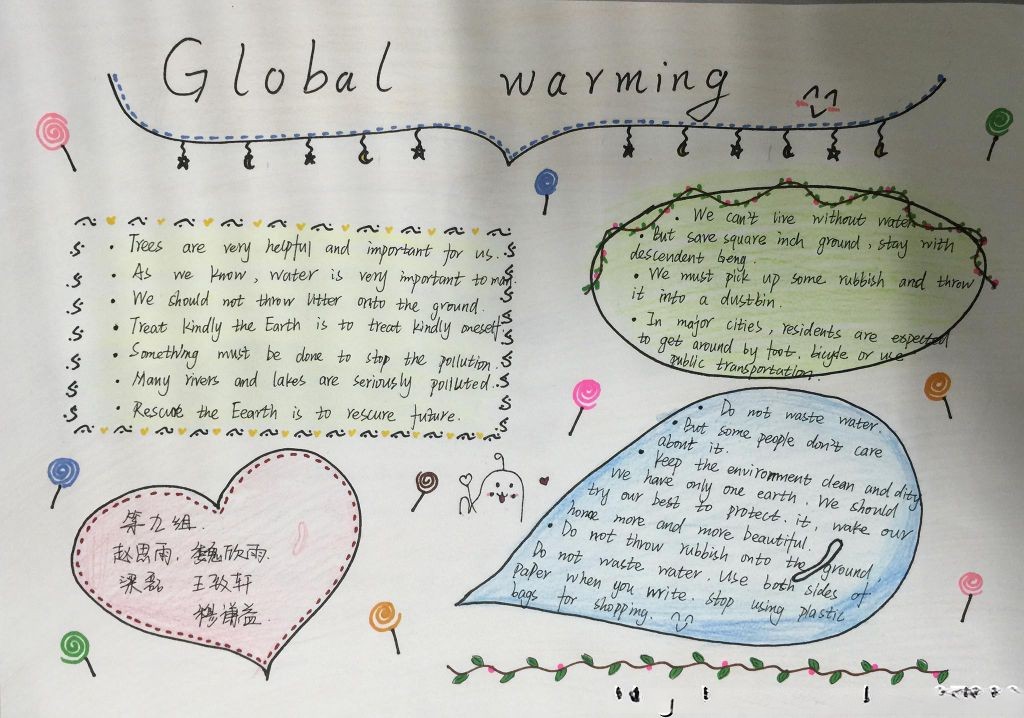 Global warming
• Trees are very helpful and important for us.
• As we know, water is very important to man.
• We should not throw litter onto the ground.
• Treat kindly the Earth is to treat kindly oneself
• Something must be done to stop the pollution.
• Many rivers and lakes are seriously polluted.
• Rescure the Eearth is to rescure future.
• We can't live without water
• But save square inch ground, stay with
descendent beng.
• We must pick up some rubbish and throw
it into a dustbin.
• In major cities, residents are expected
to get around by foot. bicyle or use
public transportation.
• Do not waste water.
• But some people don't care
about it.
• keep the environment clean and dity
We have only one earth. We should
try our best to protect. it, wake our
home more and more beautiful.
• Do not throw rubbish onto the ground
Do not waste water. Use both sides of
paper when you write. stop using plastic
bags for shopping.
第九组.
赵思雨. 魏欣雨.
梁磊 王玫轩
穆谱益.